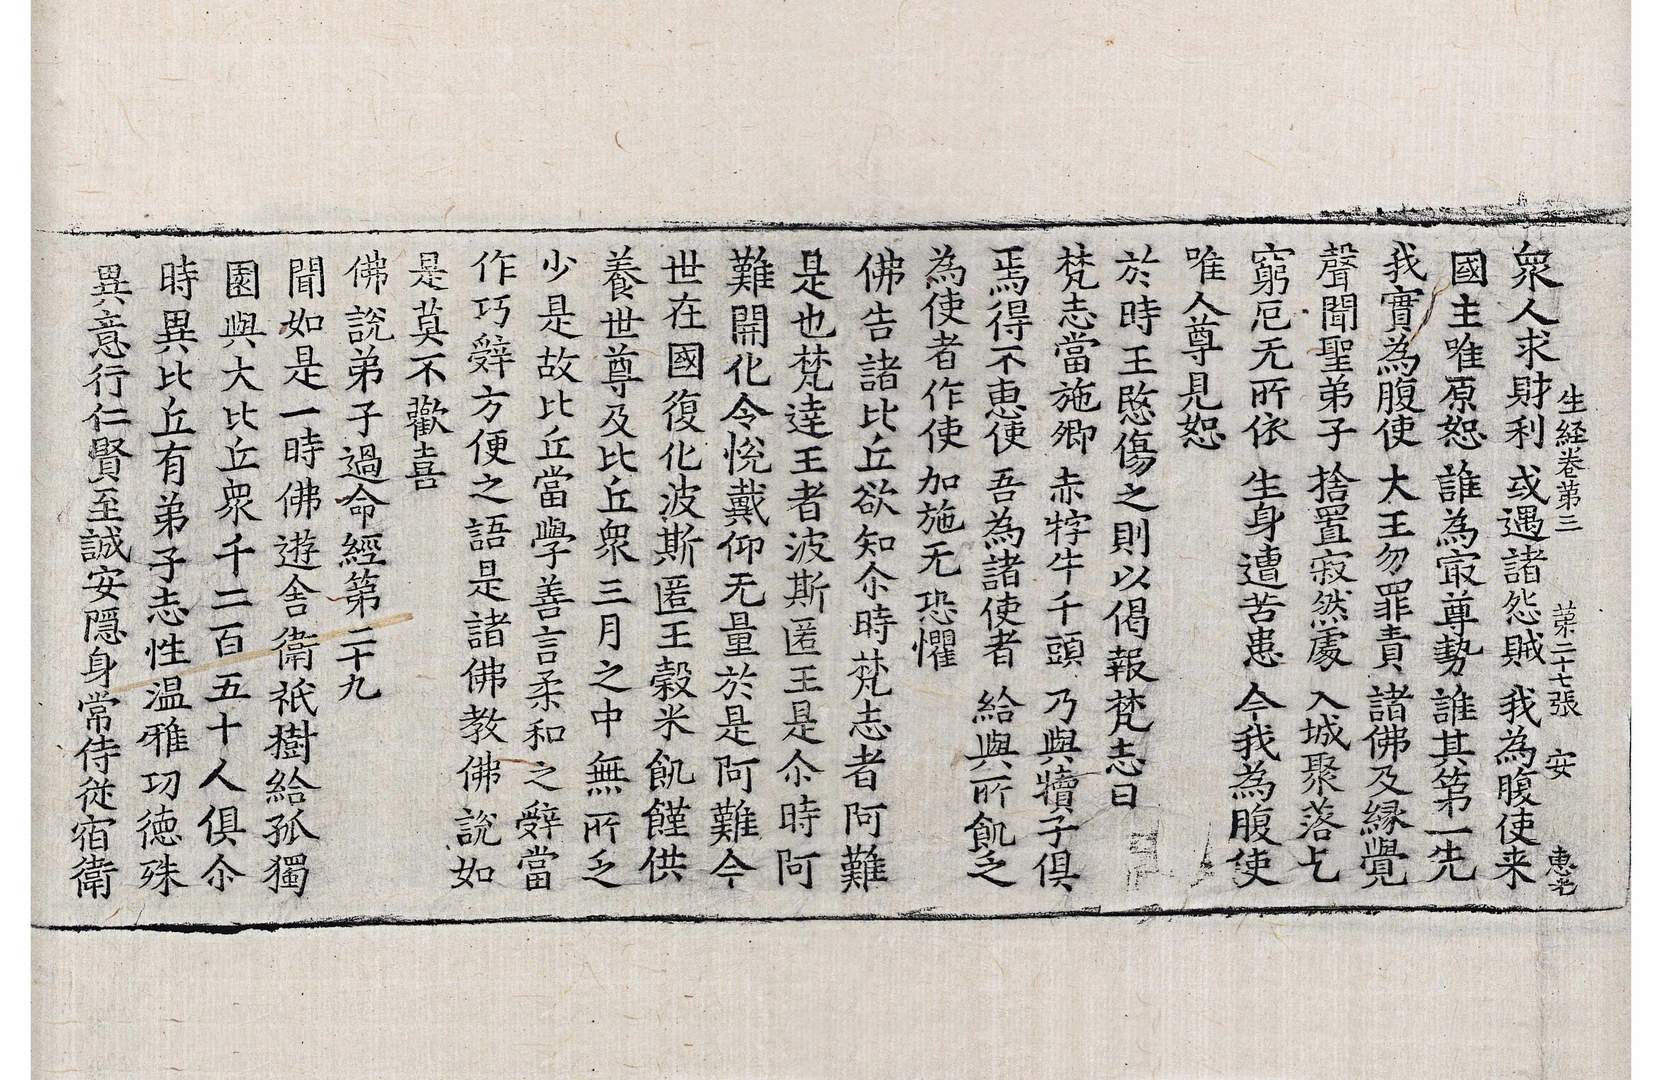 生経卷第三 第二十七張 安 惠老
衆人求財利 或遇諸怨賊 我為腹使来
國主唯原恕 誰為㝡尊勢 誰其第一先
我實為腹使 大王勿罪責 諸佛及縁覺
聲聞聖弟子 捨置寂然處 入城聚落乞
窮厄无所依 生身遭苦患 今我為腹使
唯人尊見恕
於時王愍傷之則以偈報梵志曰
梵志當施卿 赤牸牛千頭 乃與犢子俱
焉得不惠使 吾為諸使者 給與所飢乏
為使者作使 加施无恐懼
佛告諸比丘欲知尒時梵志者阿難
是也梵達王者波斯匿王是尒時阿
難開化令悅戴仰无量於是阿難今
世在國復化波斯匿王穀米飢饉供
養世尊及比丘衆三月之中無所乏
少是故比丘當學善言柔和之辝當
作巧辝方便之語是諸佛教佛說如
是莫不歡喜
佛說弟子過命經第二十九
聞如是一時佛遊舎衛祇樹給孤獨
園與大比丘衆千二百五十人俱尒
時異比丘有弟子志性温雅功德殊
異意行仁賢至誠安隱身常侍從宿衛